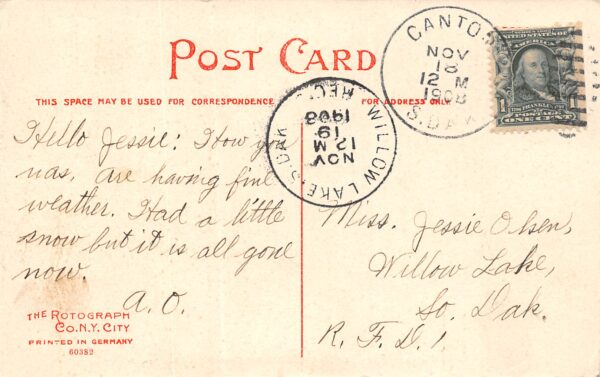 POST CARD
THIS SPACE MAY BE USED FOR CORRESPONDENCE
FOR ADDRESS ONLY
CANTON
NOV
18
12 M
1908
S. DAK
UNITED STATES OF
AMERICA
FRANKLIN
1
ONE CENT
WILLOW LAKE, S. DAK
REC'D
NOV
12 M
19
1908
Hello Jessie: How you
was, are having fine
weather. Had a little
snow but it is all gone
now.
A. O.
Miss. Jessie Olsen,
Willow Lake,
So. Dak.
R. F. D. 1
THE ROTOGRAPH
CO. N.Y. CITY
PRINTED IN GERMANY
60382